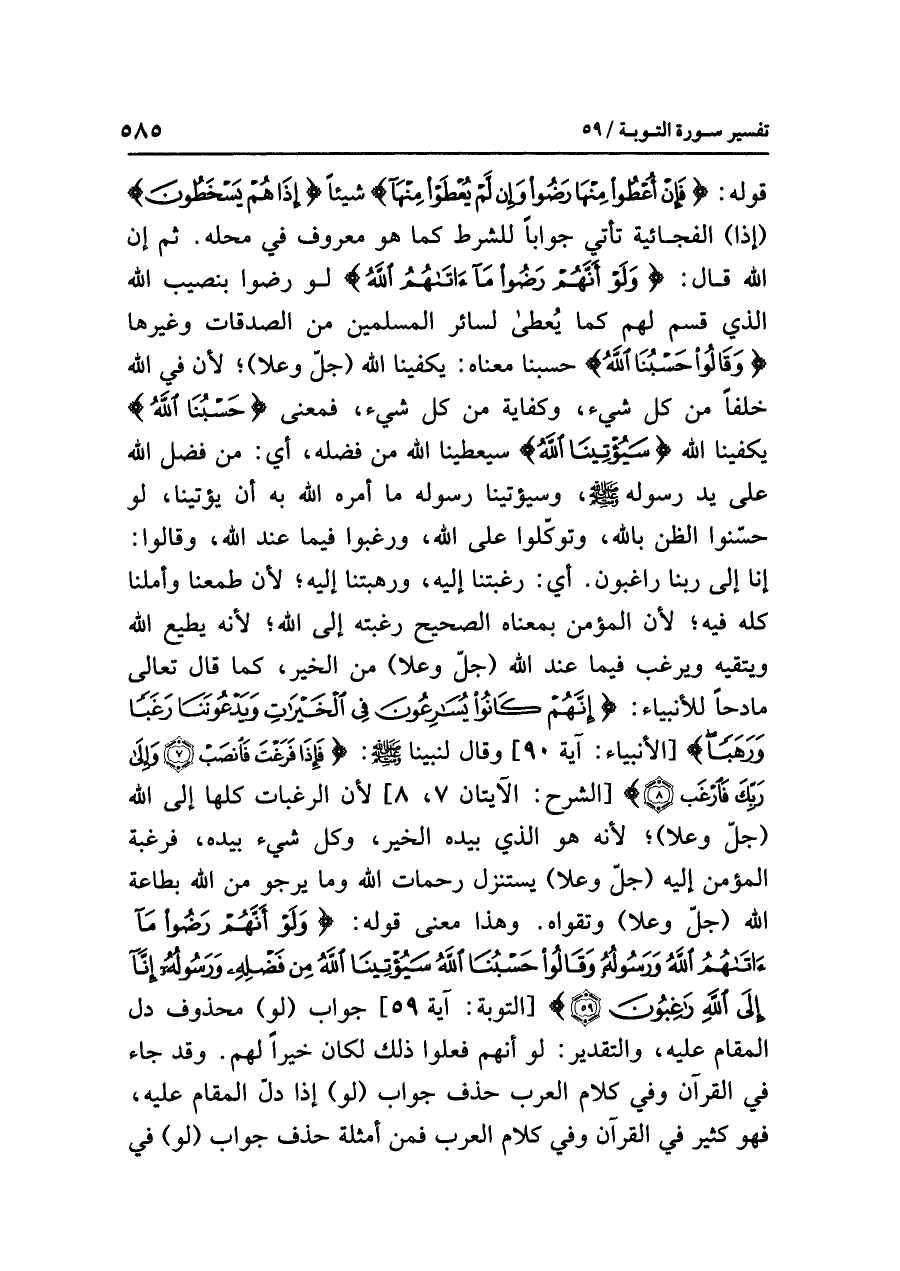 تفسير سورة التوبة / ٥٩ ٥٨٥
قوله: ﴿ فَإِنْ أُعْطُوا۟ مِنْهَا رَضُوا۟ وَإِن لَّمْ يُعْطَوْا۟ مِنْهَآ﴾ شيئاً ﴿ إِذَا هُمْ يَسْخَطُونَ﴾
(إذا) الفجائية تأتي جواباً للشرط كما هو معروف في محله. ثم إن
الله قال: ﴿ وَلَوْ أَنَّهُمْ رَضُوا۟ مَآ ءَاتَىٰهُمُ ٱللَّهُ ﴾ لو رضوا بنصيب الله
الذي قسم لهم كما يُعطىٰ لسائر المسلمين من الصدقات وغيرها
﴿ وَقَالُوا۟ حَسْبُنَا ٱللَّهُ﴾ حسبنا معناه: يكفينا الله (جلّ وعلا)؛ لأن في الله
خلفاً من كل شيء، وكفاية من كل شيء، فمعنى ﴿ حَسْبُنَا ٱللَّهُ ﴾
يكفينا الله ﴿ سَيُؤْتِينَا ٱللَّهُ﴾ سيعطينا الله من فضله، أي: من فضل الله
على يد رسوله ﷺ، وسيؤتينا رسوله ما أمره الله به أن يؤتينا، لو
حسّنوا الظن بالله، وتوكّلوا على الله، ورغبوا فيما عند الله، وقالوا:
إنا إلى ربنا راغبون. أي: رغبتنا إليه، ورهبتنا إليه؛ لأن طمعنا وأملنا
كله فيه؛ لأن المؤمن بمعناه الصحيح رغبته إلى الله؛ لأنه يطيع الله
ويتقيه ويرغب فيما عند الله (جلّ وعلا) من الخير، كما قال تعالى
مادحاً للأنبياء: ﴿ إِنَّهُمْ كَانُوا۟ يُسَٰرِعُونَ فِى ٱلْخَيْرَٰتِ وَيَدْعُونَنَا رَغَبًا
وَرَهَبًا ۖ﴾ [الأنبياء: آية ٩٠] وقال لنبينا ﷺ: ﴿ فَإِذَا فَرَغْتَ فَٱنصَبْ ۝٧ وَإِلَىٰ
رَبِّكَ فَٱرْغَب ۝٨ ﴾ [الشرح: الآيتان ٧، ٨] لأن الرغبات كلها إلى الله
(جلّ وعلا)؛ لأنه هو الذي بيده الخير، وكل شيء بيده، فرغبة
المؤمن إليه (جلّ وعلا) يستنزل رحمات الله وما يرجو من الله بطاعة
الله (جلّ وعلا) وتقواه. وهذا معنى قوله: ﴿ وَلَوْ أَنَّهُمْ رَضُوا۟ مَآ
ءَاتَىٰهُمُ ٱللَّهُ وَرَسُولُهُۥ وَقَالُوا۟ حَسْبُنَا ٱللَّهُ سَيُؤْتِينَا ٱللَّهُ مِن فَضْلِهِۦ وَرَسُولُهُۥٓ إِنَّآ
إِلَى ٱللَّهِ رَٰغِبُونَ ۝٥٩ ﴾ [التوبة: آية ٥٩] جواب (لو) محذوف دل
المقام عليه، والتقدير: لو أنهم فعلوا ذلك لكان خيراً لهم. وقد جاء
في القرآن وفي كلام العرب حذف جواب (لو) إذا دلّ المقام عليه،
فهو كثير في القرآن وفي كلام العرب فمن أمثلة حذف جواب (لو) في